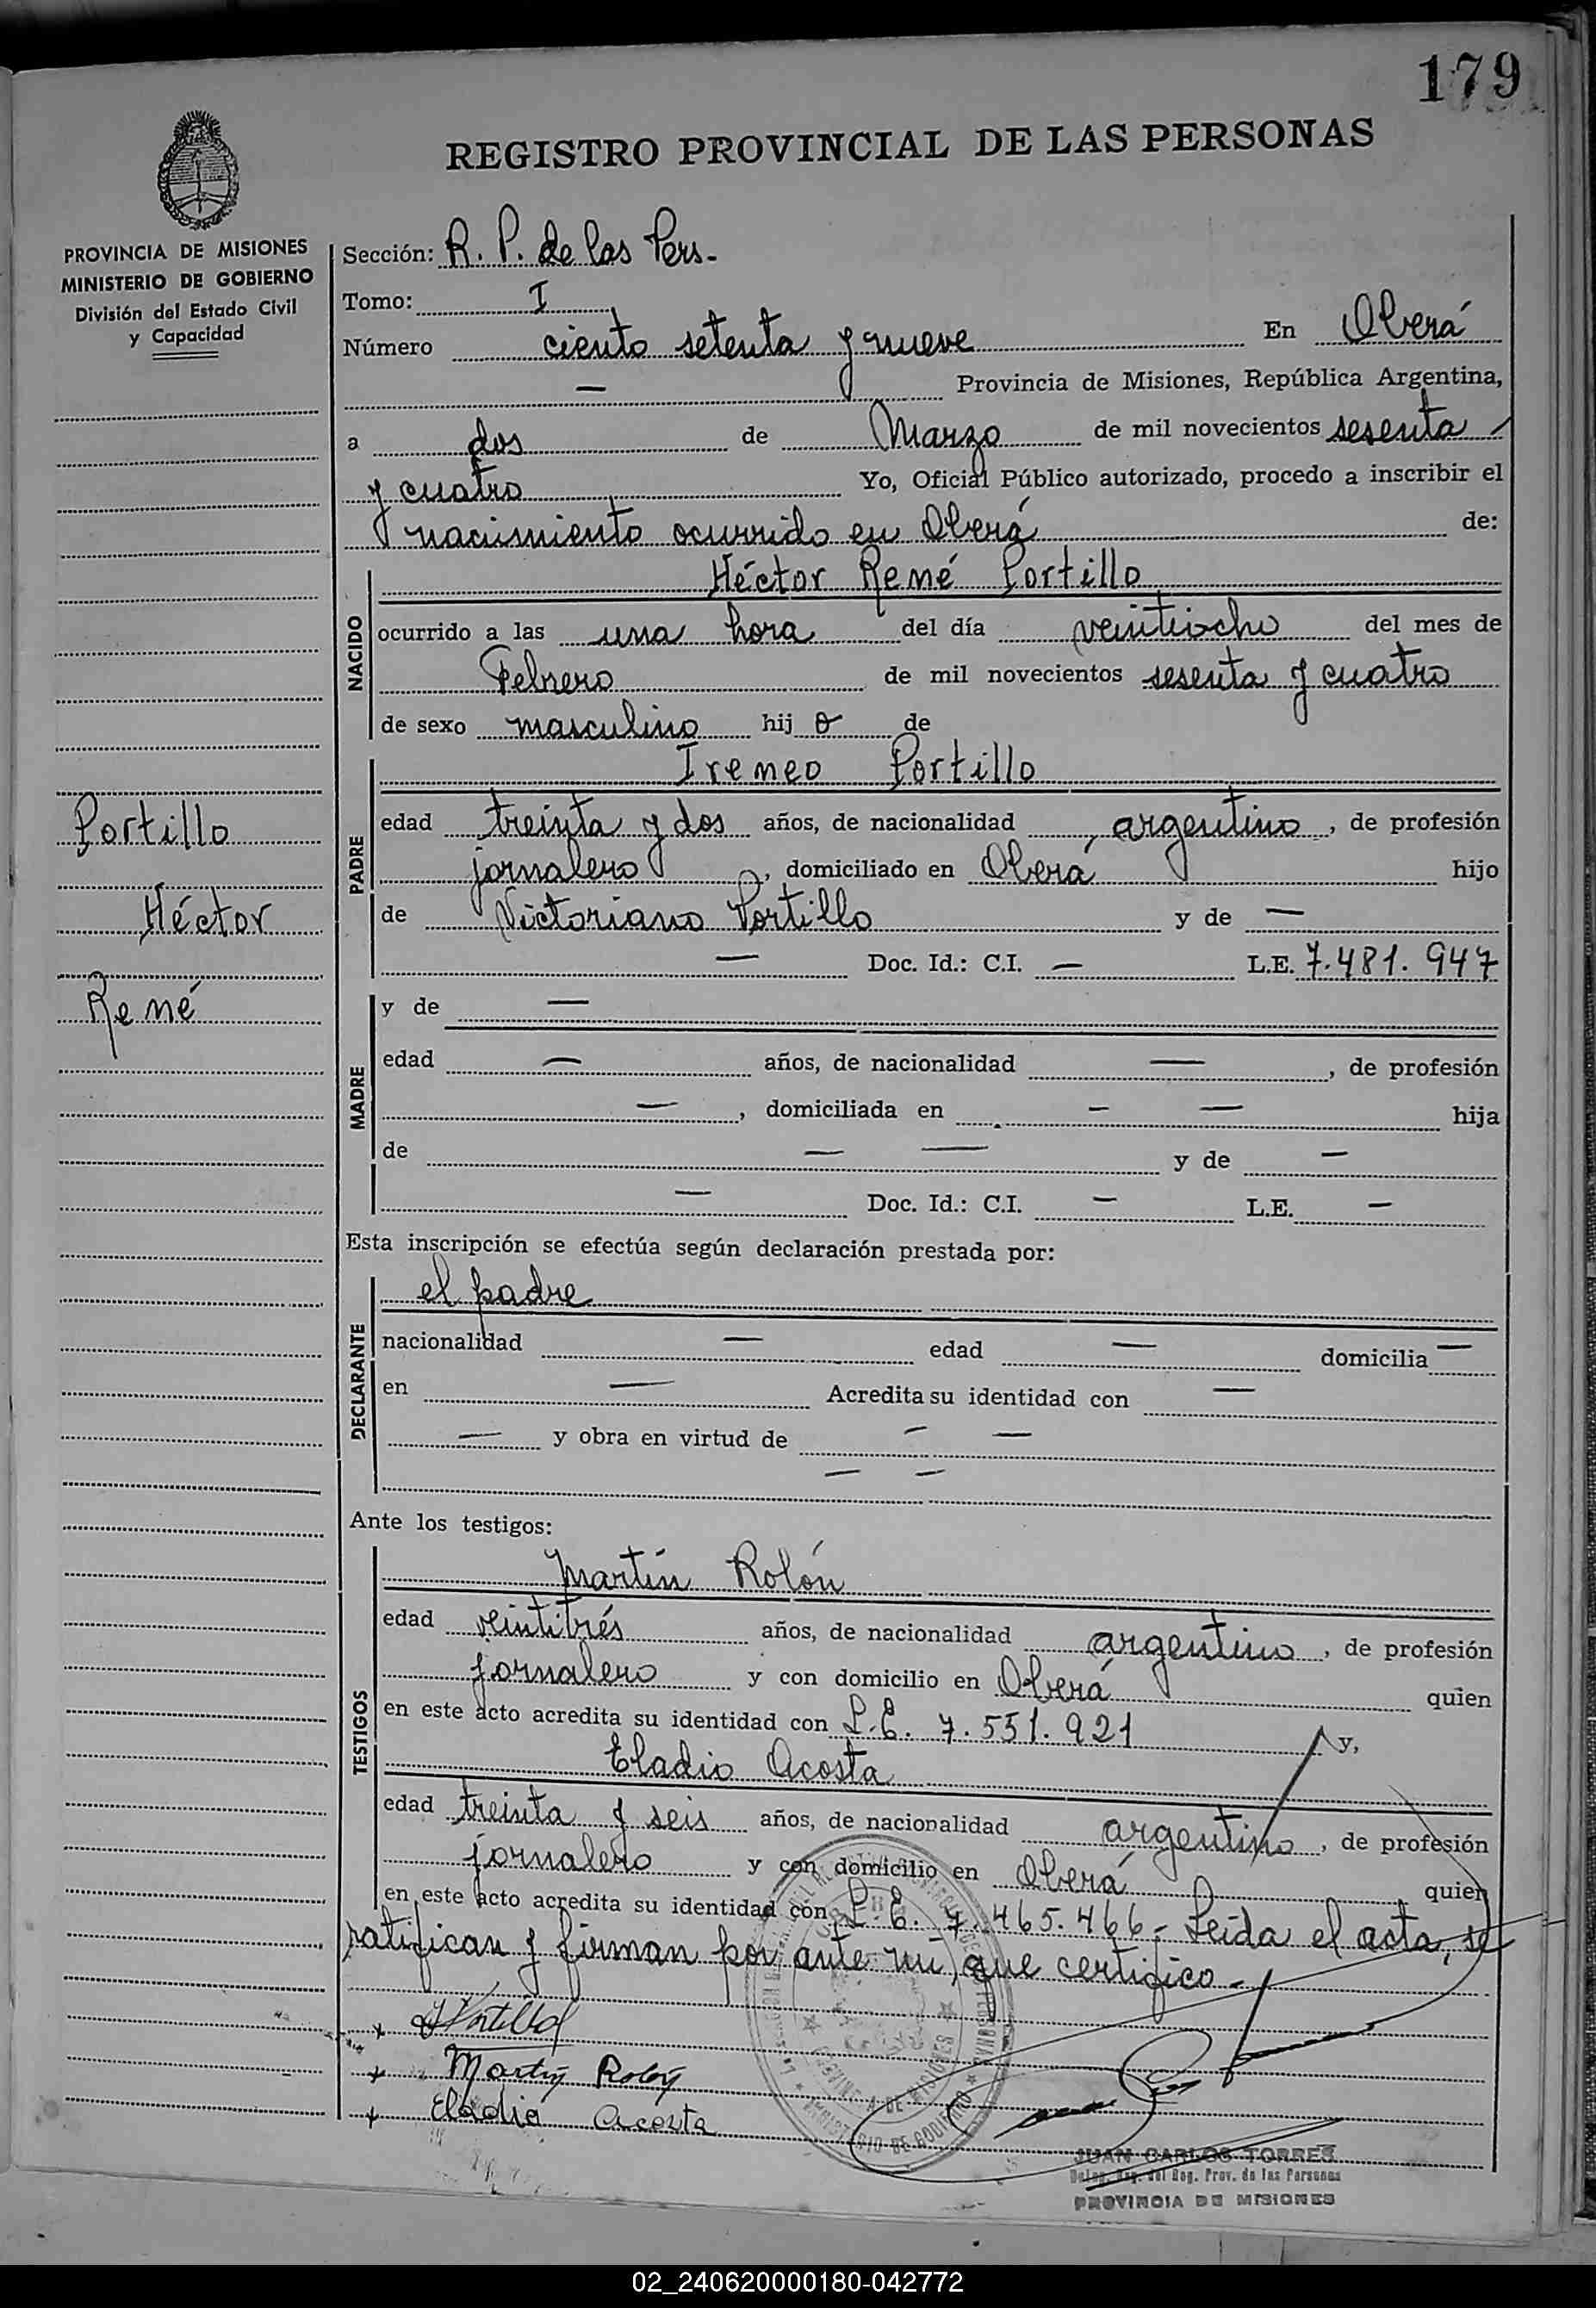 179
REGISTRO PROVINCIAL DE LAS PERSONAS
PROVINCIA DE MISIONES
MINISTERIO DE GOBIERNO
División del Estado Civil
y Capacidad
Portillo
Héctor
René
Sección: R. P. de las Pers-
Tomo: I
Número ciento setenta y nueve En Oberá
— Provincia de Misiones, República Argentina,
a dos de Marzo de mil novecientos sesenta
y cuatro Yo, Oficial Público autorizado, procedo a inscribir el
nacimiento ocurrido en Oberá de:
NACIDO
Héctor René Portillo
ocurrido a las una hora del día veintiocho del mes de
Febrero de mil novecientos sesenta y cuatro
de sexo masculino hij o de
PADRE
Ireneo Portillo
edad treinta y dos años, de nacionalidad argentino, de profesión
jornalero, domiciliado en Oberá hijo
de Victoriano Portillo y de —
— Doc. Id.: C.I. — L.E. 7.481.947
MADRE
y de —
edad — años, de nacionalidad —, de profesión
—, domiciliada en — — hija
de — — y de —
— Doc. Id.: C.I. — L.E. —
Esta inscripción se efectúa según declaración prestada por:
DECLARANTE
el padre
nacionalidad — edad — domicilia —
en — Acredita su identidad con —
— y obra en virtud de — —
— —
Ante los testigos:
TESTIGOS
Martín Rolón
edad veintitrés años, de nacionalidad argentino, de profesión
jornalero y con domicilio en Oberá quien
en este acto acredita su identidad con L.E. 7.551.921 y,
Eladio Acosta
edad treinta y seis años, de nacionalidad argentino, de profesión
jornalero y con domicilio en Oberá quien
en este acto acredita su identidad con L.E. 7.465.466- Leída el acta, se
ratifican y firman por ante mí, que certifico-
x Portillo
x Martín Rolón
x Eladio Acosta
PROVINCIA DE MISIONES
MINISTERIO DE GOBIERNO
JUAN CARLOS TORRES
Reg. del Reg. Prov. de las Personas
PROVINCIA DE MISIONES
02_240620000180-042772